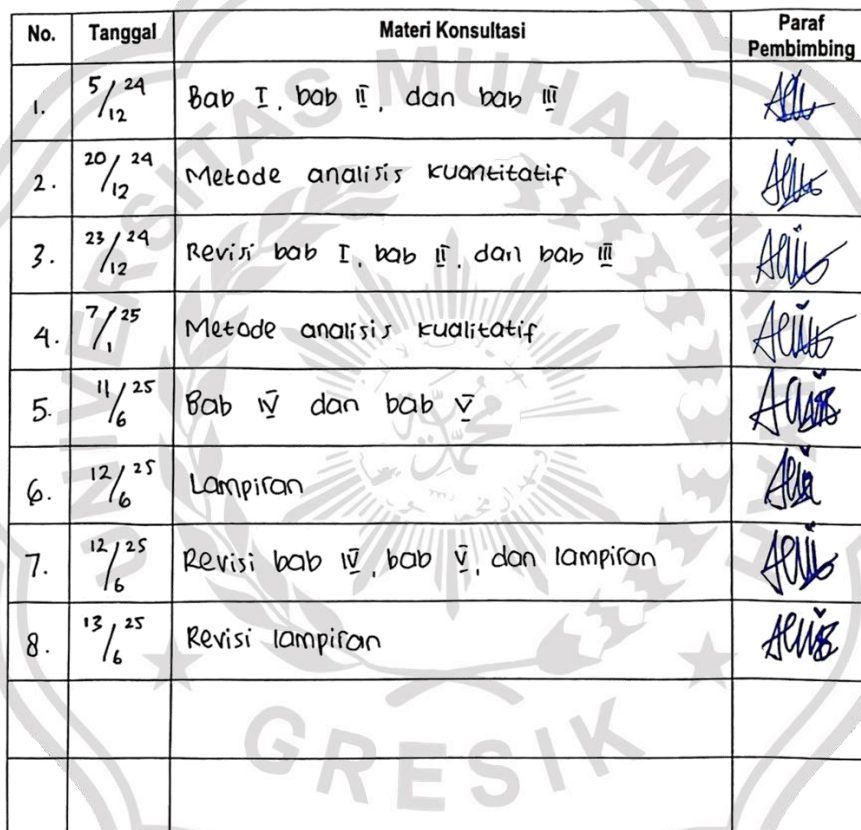 No. Tanggal Materi Konsultasi Paraf Pembimbing
1. 5/12 24 Bab I, bab II, dan bab III
2. 20/12 24 Metode analisis kuantitatif
3. 23/12 24 Revisi bab I, bab II, dan bab III
4. 7/1 25 Metode analisis kualitatif
5. 11/6 25 Bab IV dan bab V
6. 12/6 25 Lampiran
7. 12/6 25 Revisi bab IV, bab V, dan lampiran
8. 13/6 25 Revisi lampiran
UNIVERSITAS MUHAMMADIYAH
GRESIK